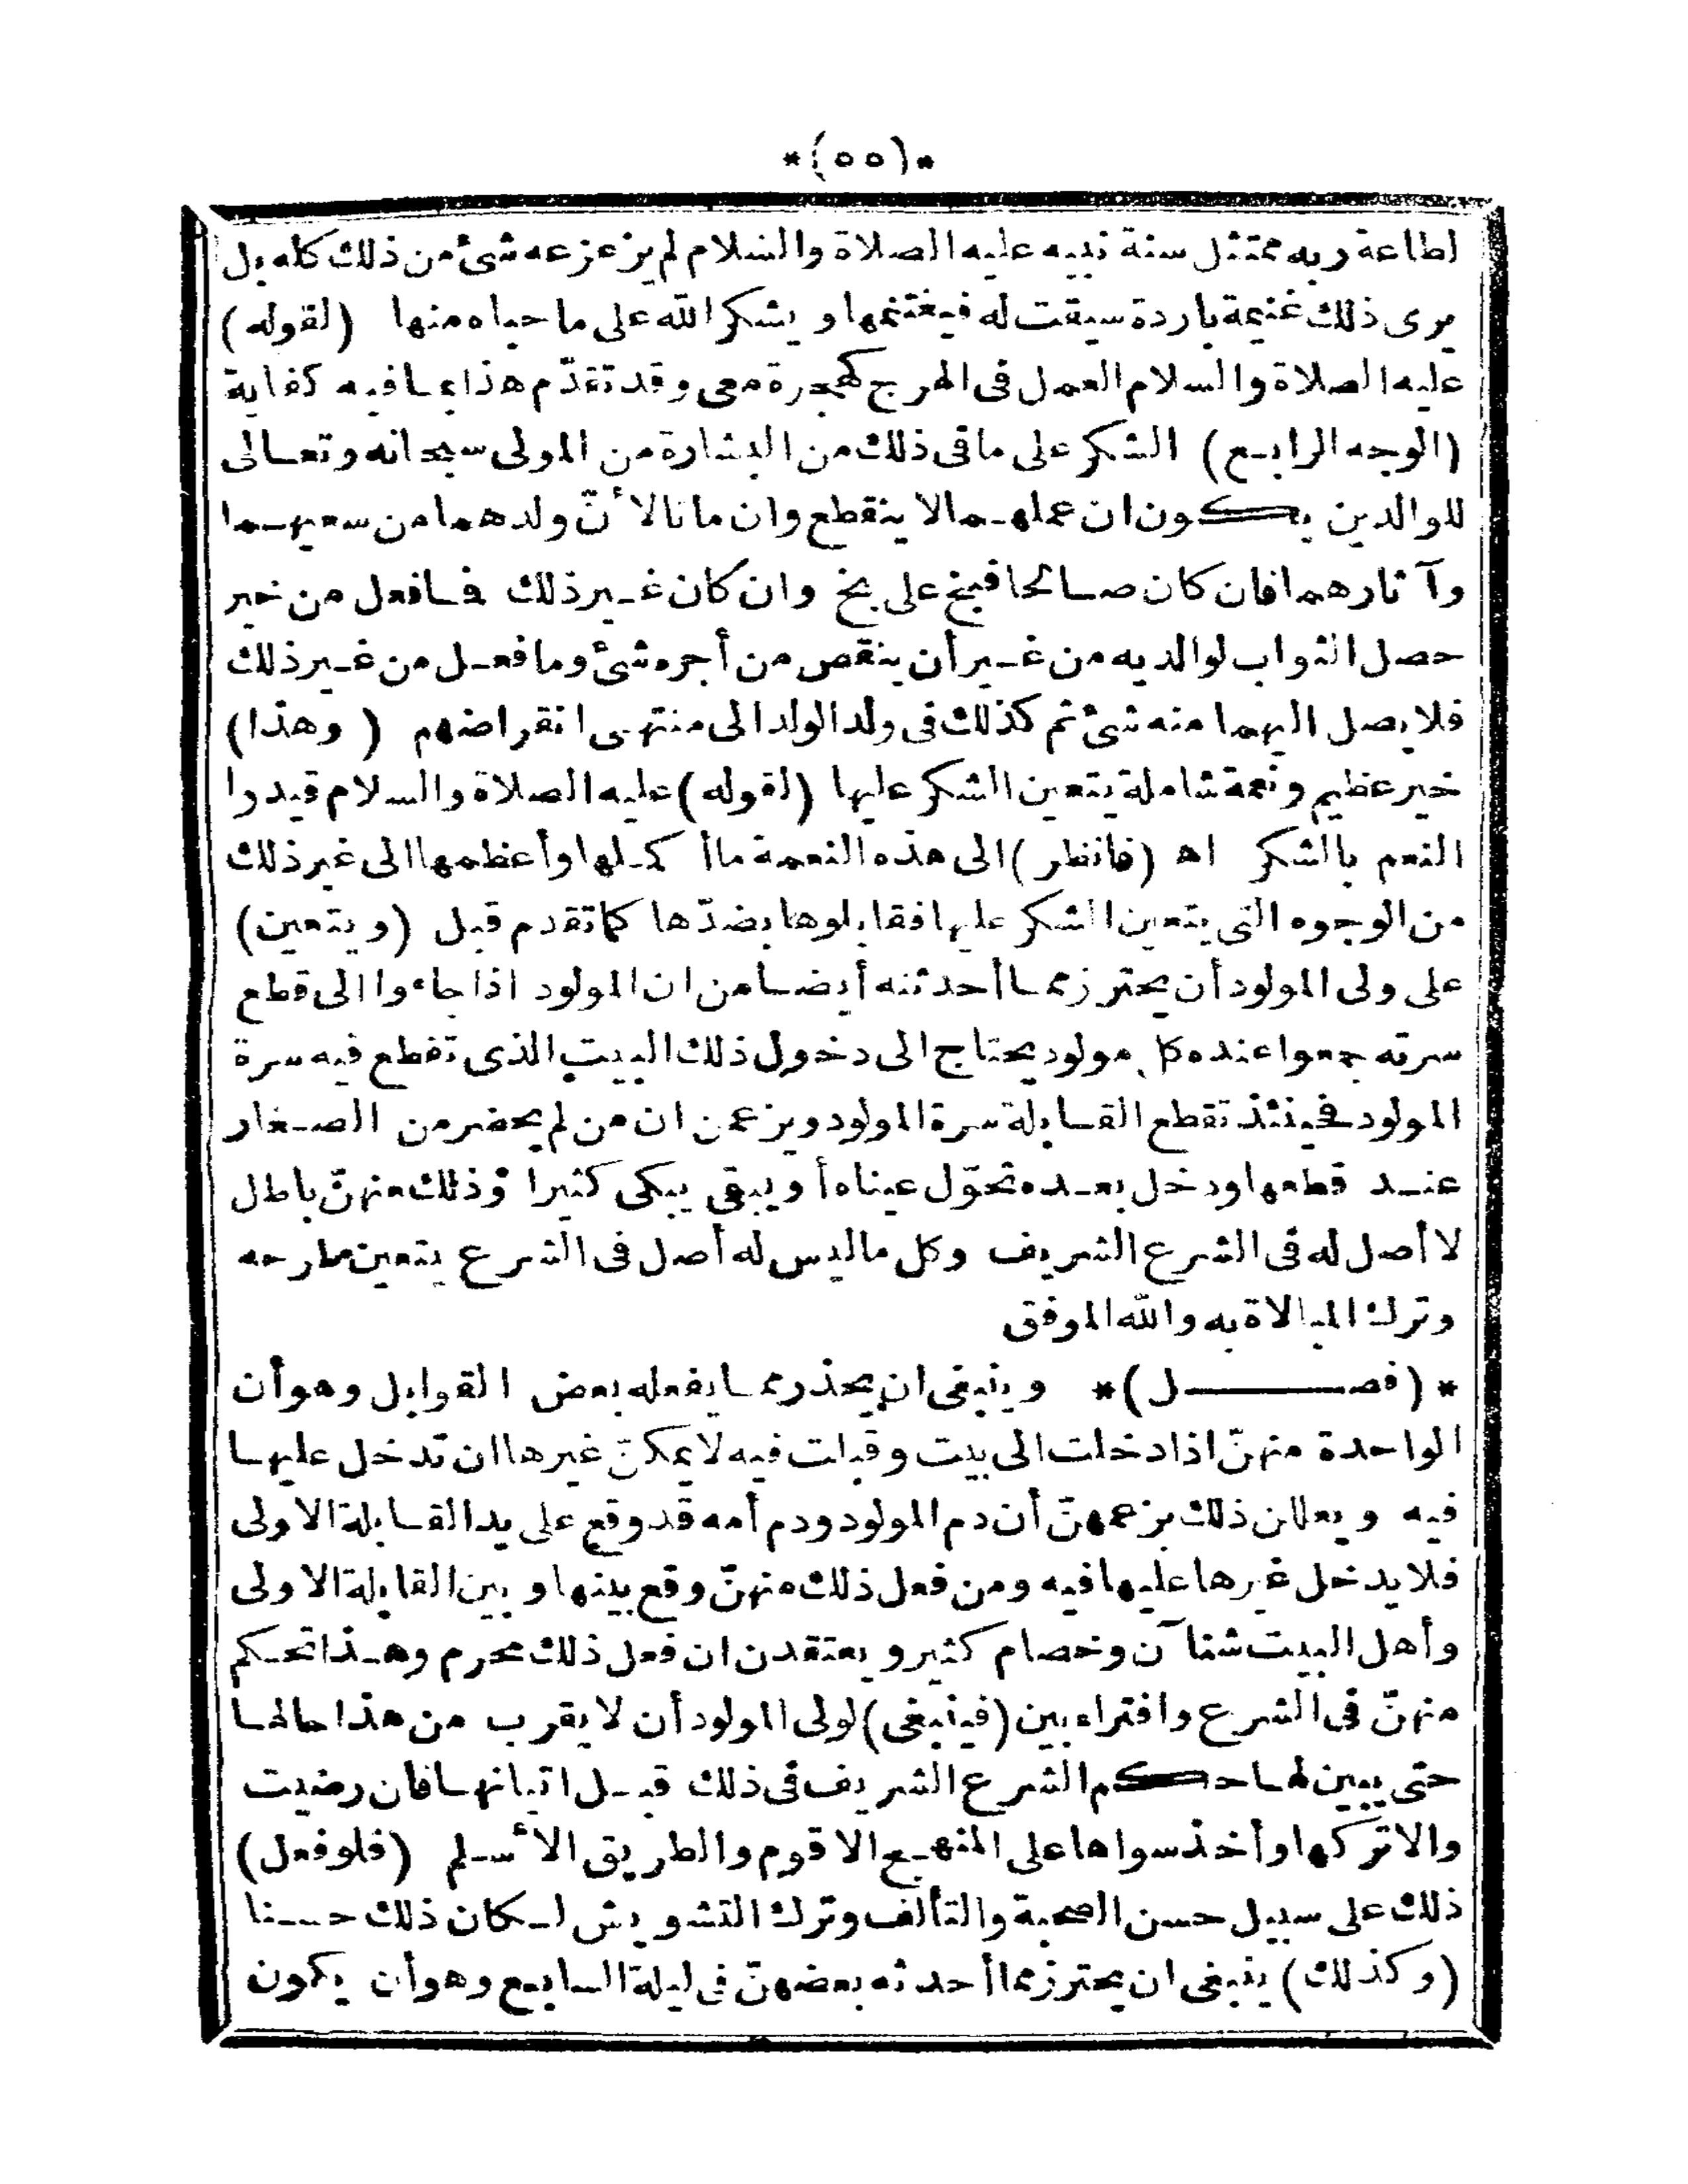 *(٥٥)*
لطاعة ربه ممتثل سنة نبيه عليه الصلاة والسلام لم يزعزعه شئ من ذلك كله بل
يرى ذلك غنيمة باردة سيقت له فيغتنمها ويشكر الله على ما حباه منها (لقوله)
عليه الصلاة والسلام العمل فى الهرج كهجرة معى وقد تقدّم هذا بما فيه كفاية
(الوجه الرابع) الشكر على ما فى ذلك من البشارة من المولى سبحانه وتعالى
للوالدين بكون ان عملهما لا ينقطع وان ماتا لأنّ ولدهما من سعيهما
وآثارهما فان كان صالحا فبخ على بخ وان كان غير ذلك فما فعل من خير
حصل الثواب لوالديه من غير أن ينقص من أجره شئ وما فعل من غير ذلك
فلا يصل اليهما منه شئ ثم كذلك فى ولد الولد الى منتهى انقراضهم (وهذا)
خير عظيم ونعمة شاملة يتعين الشكر عليها (لقوله) عليه الصلاة والسلام قيدوا
النعم بالشكر اه (فانظر) الى هذه النعمة ما أكملها وأعظمها الى غير ذلك
من الوجوه التى يتعين الشكر عليها فقابلوها بضدّها كما تقدم قبل (ويتعين)
على ولى المولود أن يحترز مما أحدثنه أيضا من ان المولود اذا جاءوا الى قطع
سرته جمعوا عنده كل مولود يحتاج الى دخول ذلك البيت الذى تقطع فيه سرة
المولود فحينئذ تقطع القابلة سرة المولود ويزعمن ان من لم يحضر من الصغار
عند قطعها ودخل بعده تحوّل عيناه أو يبقى يبكى كثيرا وذلك منهنّ باطل
لا أصل له فى الشرع الشريف وكل ما ليس له أصل فى الشرع يتعين طرحه
وترك المبالاة به والله الموفق
*(فصــل)* وينبغى ان يحذر مما يفعله بعض القوابل وهو أن
الواحدة منهنّ اذا دخلت الى بيت وقبلت فيه لا يمكنّ غيرها ان تدخل عليها
فيه ويعللن ذلك بزعمهنّ أن دم المولود ودم أمه قد وقع على يد القابلة الاولى
فلا يدخل غيرها عليها فيه ومن فعل ذلك منهنّ وقع بينها وبين القابلة الاولى
وأهل البيت شنآن وخصام كثير ويعتقدن ان فعل ذلك محرم وهذا تحكم
منهنّ فى الشرع وافتراء بين (فينبغى) لولى المولود أن لا يقرب من هذا حالها
حتى يبين لها حكم الشرع الشريف فى ذلك قبل اتيانها فان رضيت
والا تركها وأخذ سواها على المنهج الاقوم والطريق الأسلم (فلو فعل)
ذلك على سبيل حسن الصحبة والتألف وترك التشويش لكان ذلك حسنا
(وكذلك) ينبغى ان يحترز مما أحدثه بعضهنّ فى ليلة السابع وهو أن يكون